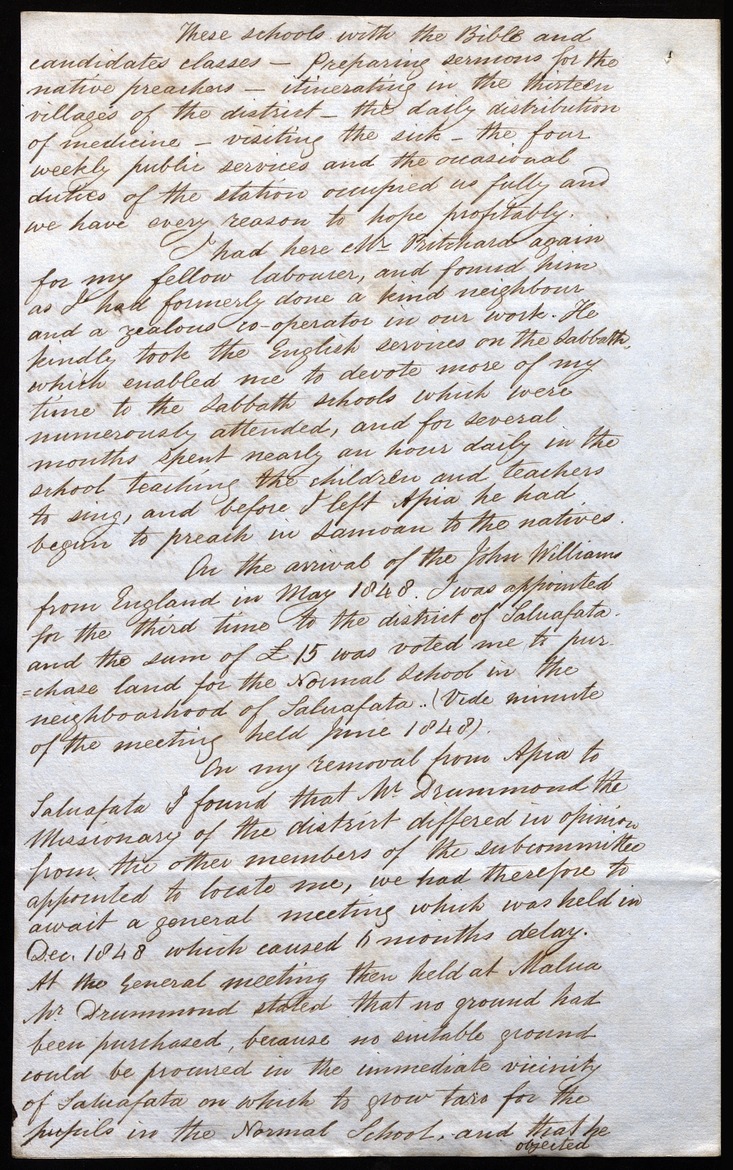 These schools with the Bible and
candidates classes — Preparing sermons for the
native preachers — itinerating in the thirteen
villages of the district — the daily distribution
of medicine — visiting the sick — the four
weekly public services and the ocasional
duties of the station occupied us fully and
we have every reason to hope profitably.
I had here Mr Pritchard again
for my fellow labourer, and found him
as I had formerly done a kind neighbour
and a zealous co-operator in our work. He
kindly took the English services on the Sabbath,
which enabled me to devote more of my
time to the Sabbath schools which were
numerously attended, and for several
months spent nearly an hour daily in the
school teaching the children and teachers
to sing, and before I left Apia he had
begun to preach in Samoan to the natives.
On the arrival of the John Williams
from England in May 1848. I was appointed
for the third time to the district of Saluafata.
and the sum of £15 was voted me to pur-
=chase land for the Normal School in the
neighbourhood of Saluafata.. (Vide minute
of the meeting held June 1848).
On my removal from Apia to
Saluafata I found that Mr Drummond the
Missionary of the district differed in opinion
from the other members of the subcommittee
appointed to locate me, we had therefore to
await a general meeting which was held in
Dec. 1848 which caused 6 months delay.
At the General meeting then held at Malua
Mr Drummond stated that no ground had
been purchased, because no suitable ground
could be procured in the immediate vicinity
of Saluafata on which to grow taro for the
pupils in the Normal School, and that he
objected